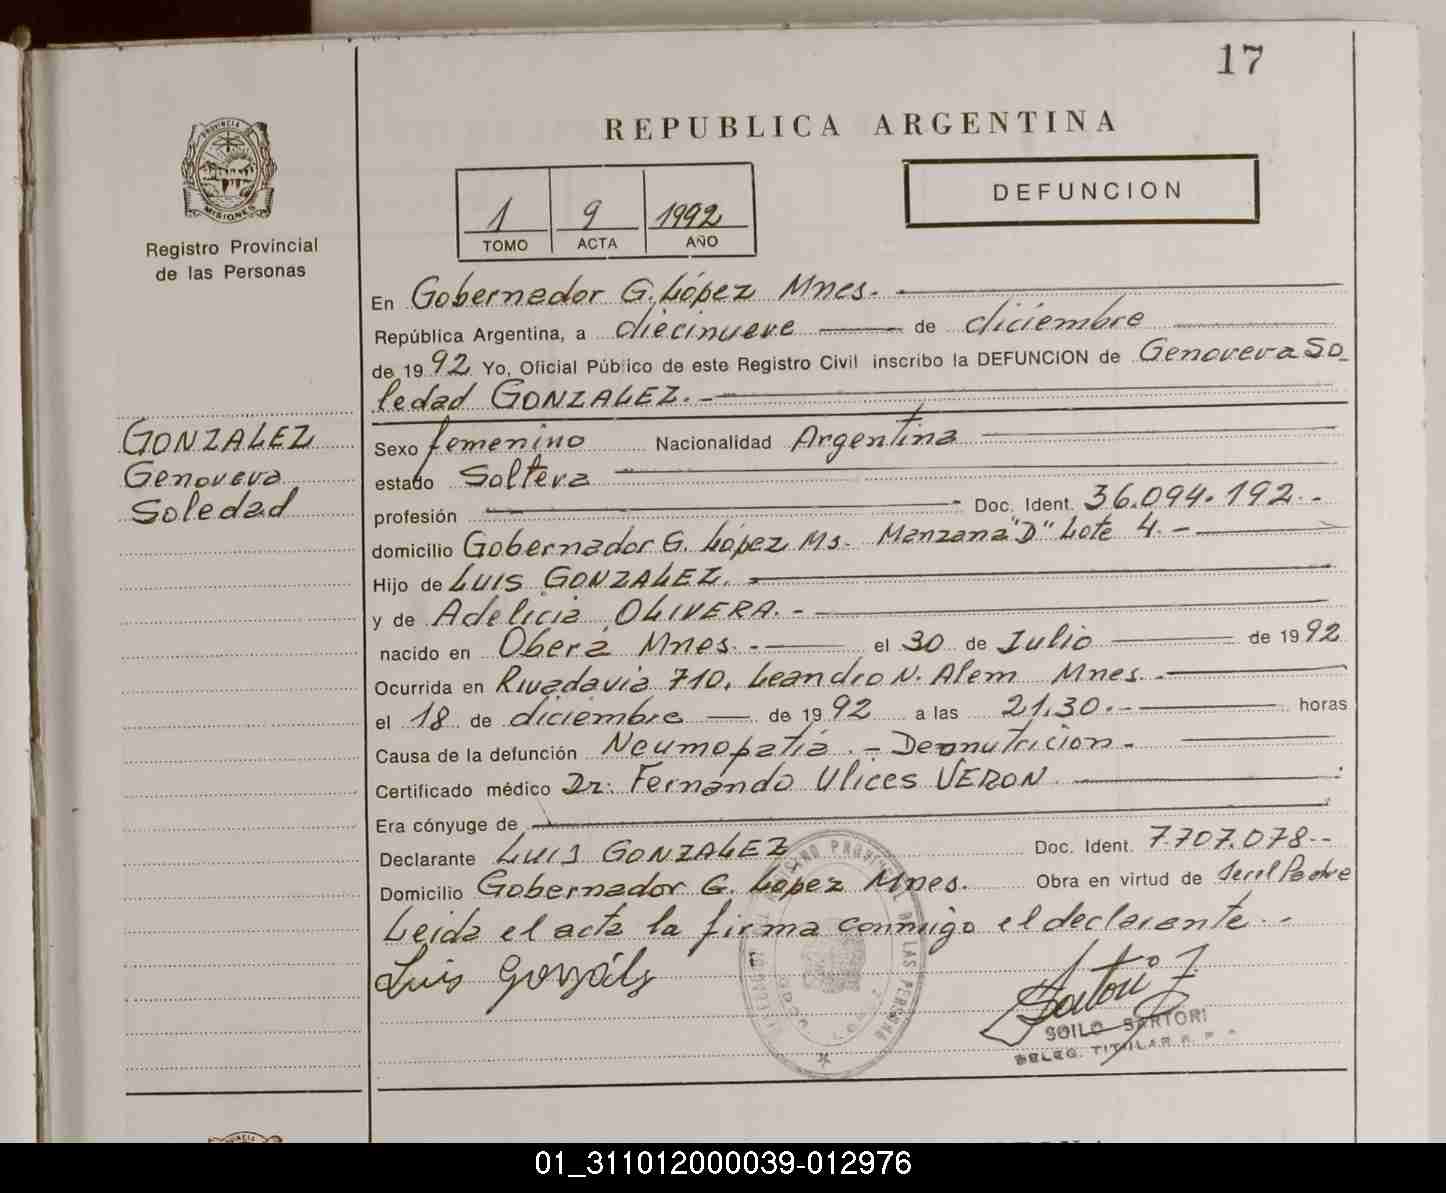 17
REPUBLICA ARGENTINA
PROVINCIA DE
MISIONES
Registro Provincial
de las Personas
1 9 1992
TOMO ACTA AÑO
DEFUNCION
En Gobernador G. López Mnes. -
República Argentina, a diecinueve de diciembre
de 19 92 Yo, Oficial Público de este Registro Civil inscribo la DEFUNCION de Genoveva So-
ledad GONZALEZ. -
GONZALEZ
Genoveva
Soledad
Sexo femenino Nacionalidad Argentina
estado Soltera
profesión Doc. Ident. 36.094.192.-
domicilio Gobernador G. López Ms. Manzana "D" Lote 4. -
Hijo de LUIS GONZALEZ.
y de Adelicia OLIVERA. -
nacido en Oberá Mnes. - el 30 de Julio de 19 92
Ocurrida en Rivadavia 710, Leandro N. Alem Mnes. -
el 18 de diciembre de 19 92 a las 21,30. - horas
Causa de la defunción Neumopatía. - Desnutricion -
Certificado médico Dr: Fernando Ulices VERON
Era cónyuge de
Declarante LUIS GONZALEZ Doc. Ident. 7.707.078--
Domicilio Gobernador G. López Mnes. Obra en virtud de Ser el Padre
Leida el acta la firma conmigo el declarante. -
Luis González
Sartori
SOILO SARTORI
DELEG. TITULAR R. P.
01_311012000039-012976